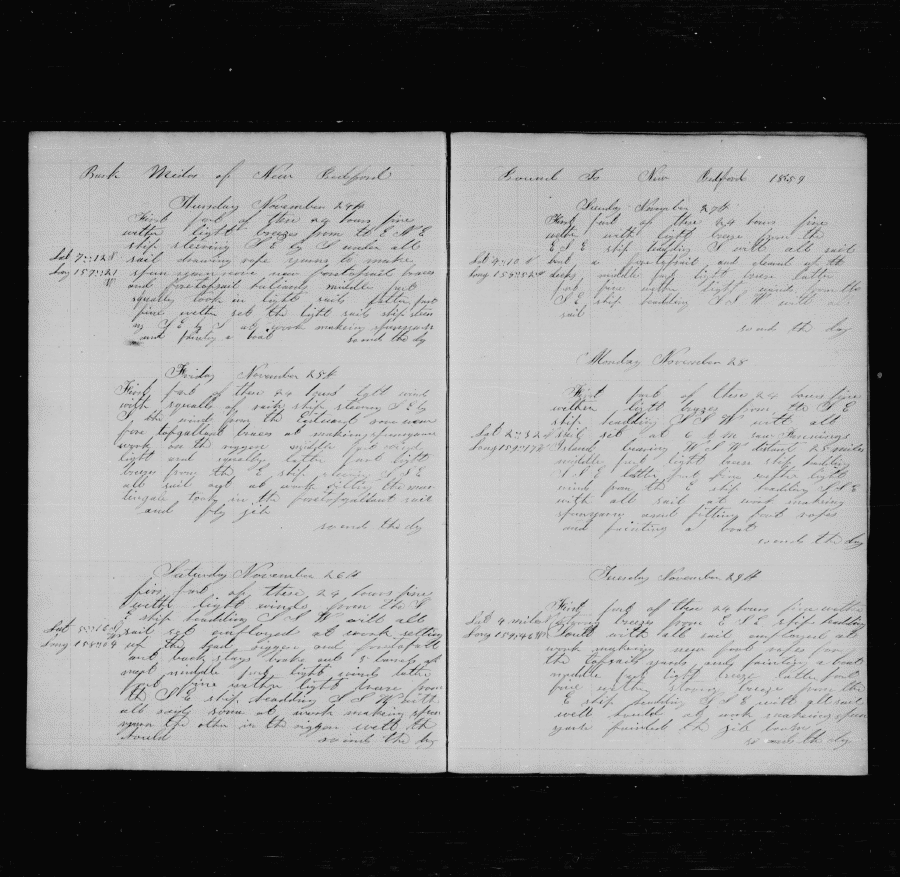 Bark Midas of New Bedford
Thursday November 24th
First part of these 24 hours fine
wether light breezes from to E N E
ship steering S E by S under all
Lat 7::12 S sail drawing rope yarns to make
Long 157::21 W spun yarn rove new foretopsail braces
and foretopsail haliards middle part
squally took in light sails latter part
fine wether set the light sails ship steer
ing S E by S at work making spunyarn
and painting a boat so ends the day
Friday November 25th
First part of these 24 hours light winds
with squalls of rain ship steering S E by
S the wind from the Eastward rove new
fore topgallant braces at making spunyarn
work on the rigger middle part wind
light and squally latter part light
breeze from the E ship steering S S E
all sail set at work fitting the mar
tingale took in the foretopgallant sail
and fly jib
so ends the day
Saturday November 26th
first part of these 24 hours fine
wether light winds from the
E ship heading S S W with all
Lat 5::16 sail set employed at work setting
Long 158::04 up the head riggen and foretopmast
and back stays broke out 3 barrels of
meat middle part light winds latter
part fine wether light breeze from
the S E ship heading S S W with
all sail some at work making spun
yarn the other in the riggen with the
so ends the day
Bound To New Bedford 1859
Sunday November 27th
First part of these 24 hours fine
wether with light breeze from the
E S E ship heading S with all sail
Lat 4::10 S but a foretopsail and cleaned up the
Long 159::52 W decks middle part light breeze latter
part fine wether light winds from the
S E ship heading S S W with all
sail
so ends the day
Monday November 28
First part of these 24 hours fine
wether light breezes from the S E
ship heading S S W with all
Lat 2::32 S sail set at 6 A M saw Jarvinings
Long 159::17 W Island bearing W S W distant 25 miles
middle part light breeze ship heading
S S E latter part fine wether light
wind from the E ship heading S S E
with all sail at work making
spunyarn and fitting foot ropes
and painting a boat
so ends the day
Tuesday November 29th
First part of these 24 hours fine wether
Lat 4 miles strong breezes from E S E ship heading
Long 159::46 W South with all sail employed at
work making new foot ropes for
the topsail yards and painting a boat
middle part light breeze latter part
fine wether strong breeze from the
E ship heading S S E with all sail
well at work making spun
yarn painted the jib boom
so ends the day